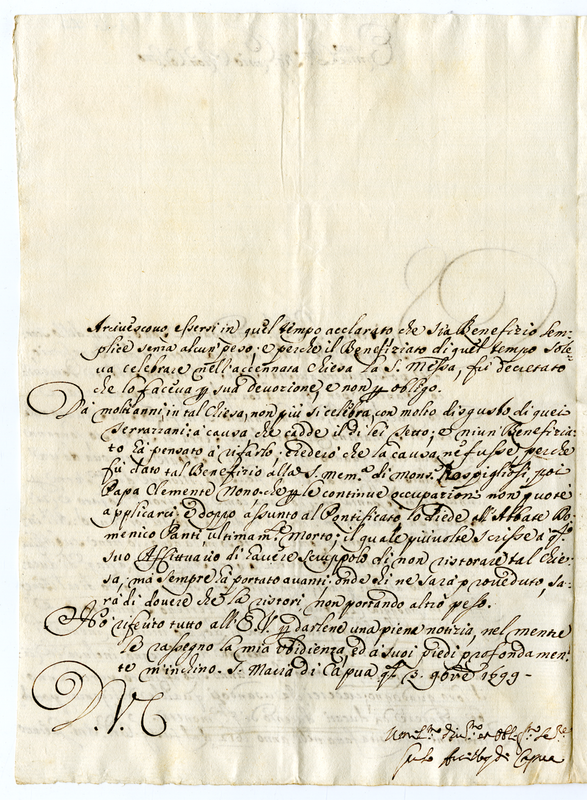 Arciuescouo, essersi in quel tempo acclarato che sia Benefizio sem=
plice senza alcun peso; e perche il Benefiziato di quel tempo sole=
ua celebrare nell'accennata Chiesa la S. Messa, fù decretato
che lo faceua p sua deuozione, e non p obligo.
Da molti anni, in tal Chiesa, non più si celebra, con molto disgusto di quei
Terrazzani: à causa che cadde il di lei tetto; e niun Benefizia=
to hà pensato à rifarlo: crederò che la causa ne fusse, perche
fù dato tal Benefizio alla S. mem.ª di mons.r Rospigliosi, poi
Papa Clemente Nono che p le continue occupazioni non puote
applicarci: E doppo assunto al Pontificato, lo diede all'Abbate Do=
menico Panti ultimam.te Morto; il quale più uolte scrisse à q.to
suo Affittuario di hauere scruppolo di non ristorare tal Chie=
sa, mà sempre hà portato auanti: onde chi ne sarà proueduto, sa=
rà di douere che la ristori, non portando altro peso.
Hò riferito tutto all'E.V. p darlene una piena notizia, nel mentre
le rassegno la mia obidienza, ed à suoi piedi profondamen=
te m'inchino. S. Maria di Capua q.to 3. 9bre 1699-
D.V.E.
Umil.mo Diu.mo et Obl.mo Se.re
di Capua